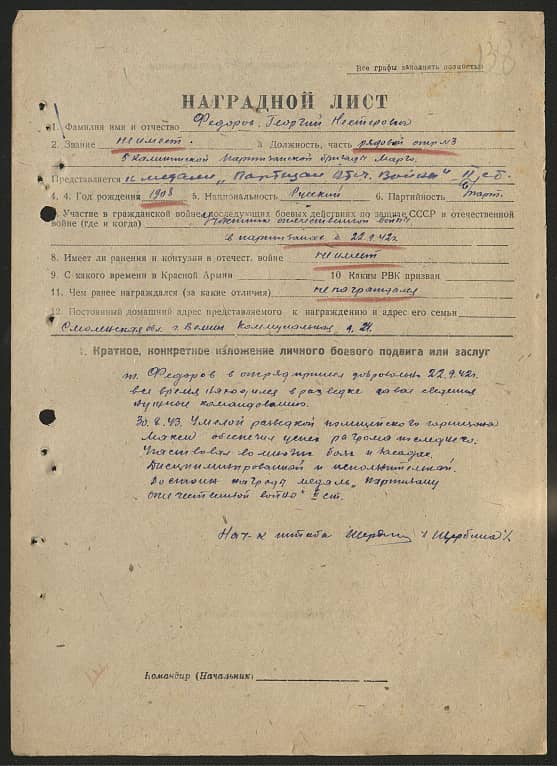 138
Все графы заполнять полностью
НАГРАДНОЙ ЛИСТ
1. Фамилия имя и отчество Федоров Георгий Нестерович
2. Звание не имеет. 3 Должность, часть рядовой отр N3
5 Калининской партизанской бригады
Представляется к медали „Партизан Отеч. Войны" II ст.
4. 4. Год рождения 1908 5. Национальность Русский 6. Партийность б/парт.
Участие в гражданской войне, последующих боевых действиях по защите СССР и отечественной
войне (где и когда) отечественной войны
в партизанах с 22.9.42г.
8. Имеет ли ранения и контузии в отечест. войне не имеет
9. С какого времени в Красной Армии 10 Каким РВК призван
11. Чем ранее награждался (за какие отличия) не награждался
12. Постоянный домашний адрес представляемого к награждению и адрес его семьи
Смоленская обл. г. Коммунальная д. 24.
1. Краткое, конкретное изложение личного боевого подвига или заслуг
т. Федоров в отряд пришел добровольно 22.9.42г.
все время находился в разведке давая сведения
нужные командованию.
30.8.43. Умелой разведкой полицейского гарнизона
обеспечил успех разгрома последнего.
Участвовал во многих боях и засадах.
Дисциплинированный и исполнительный.
Достоин награды медаль „Партизану
отечественной войны" II ст.
Нач-к штаба /Щербина/
Командир (Начальник)